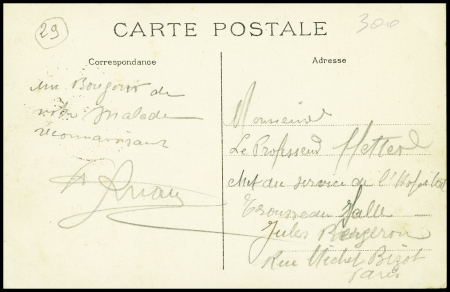 29
300
CARTE POSTALE
Correspondance
Adresse
un Bonjour de
votre Malade
reconnaissant
Monsieur
Le Professeur
chef du service de l'Hopital
Trousseau Salle
Jules Bergeron
Rue Michel Bizot
Paris